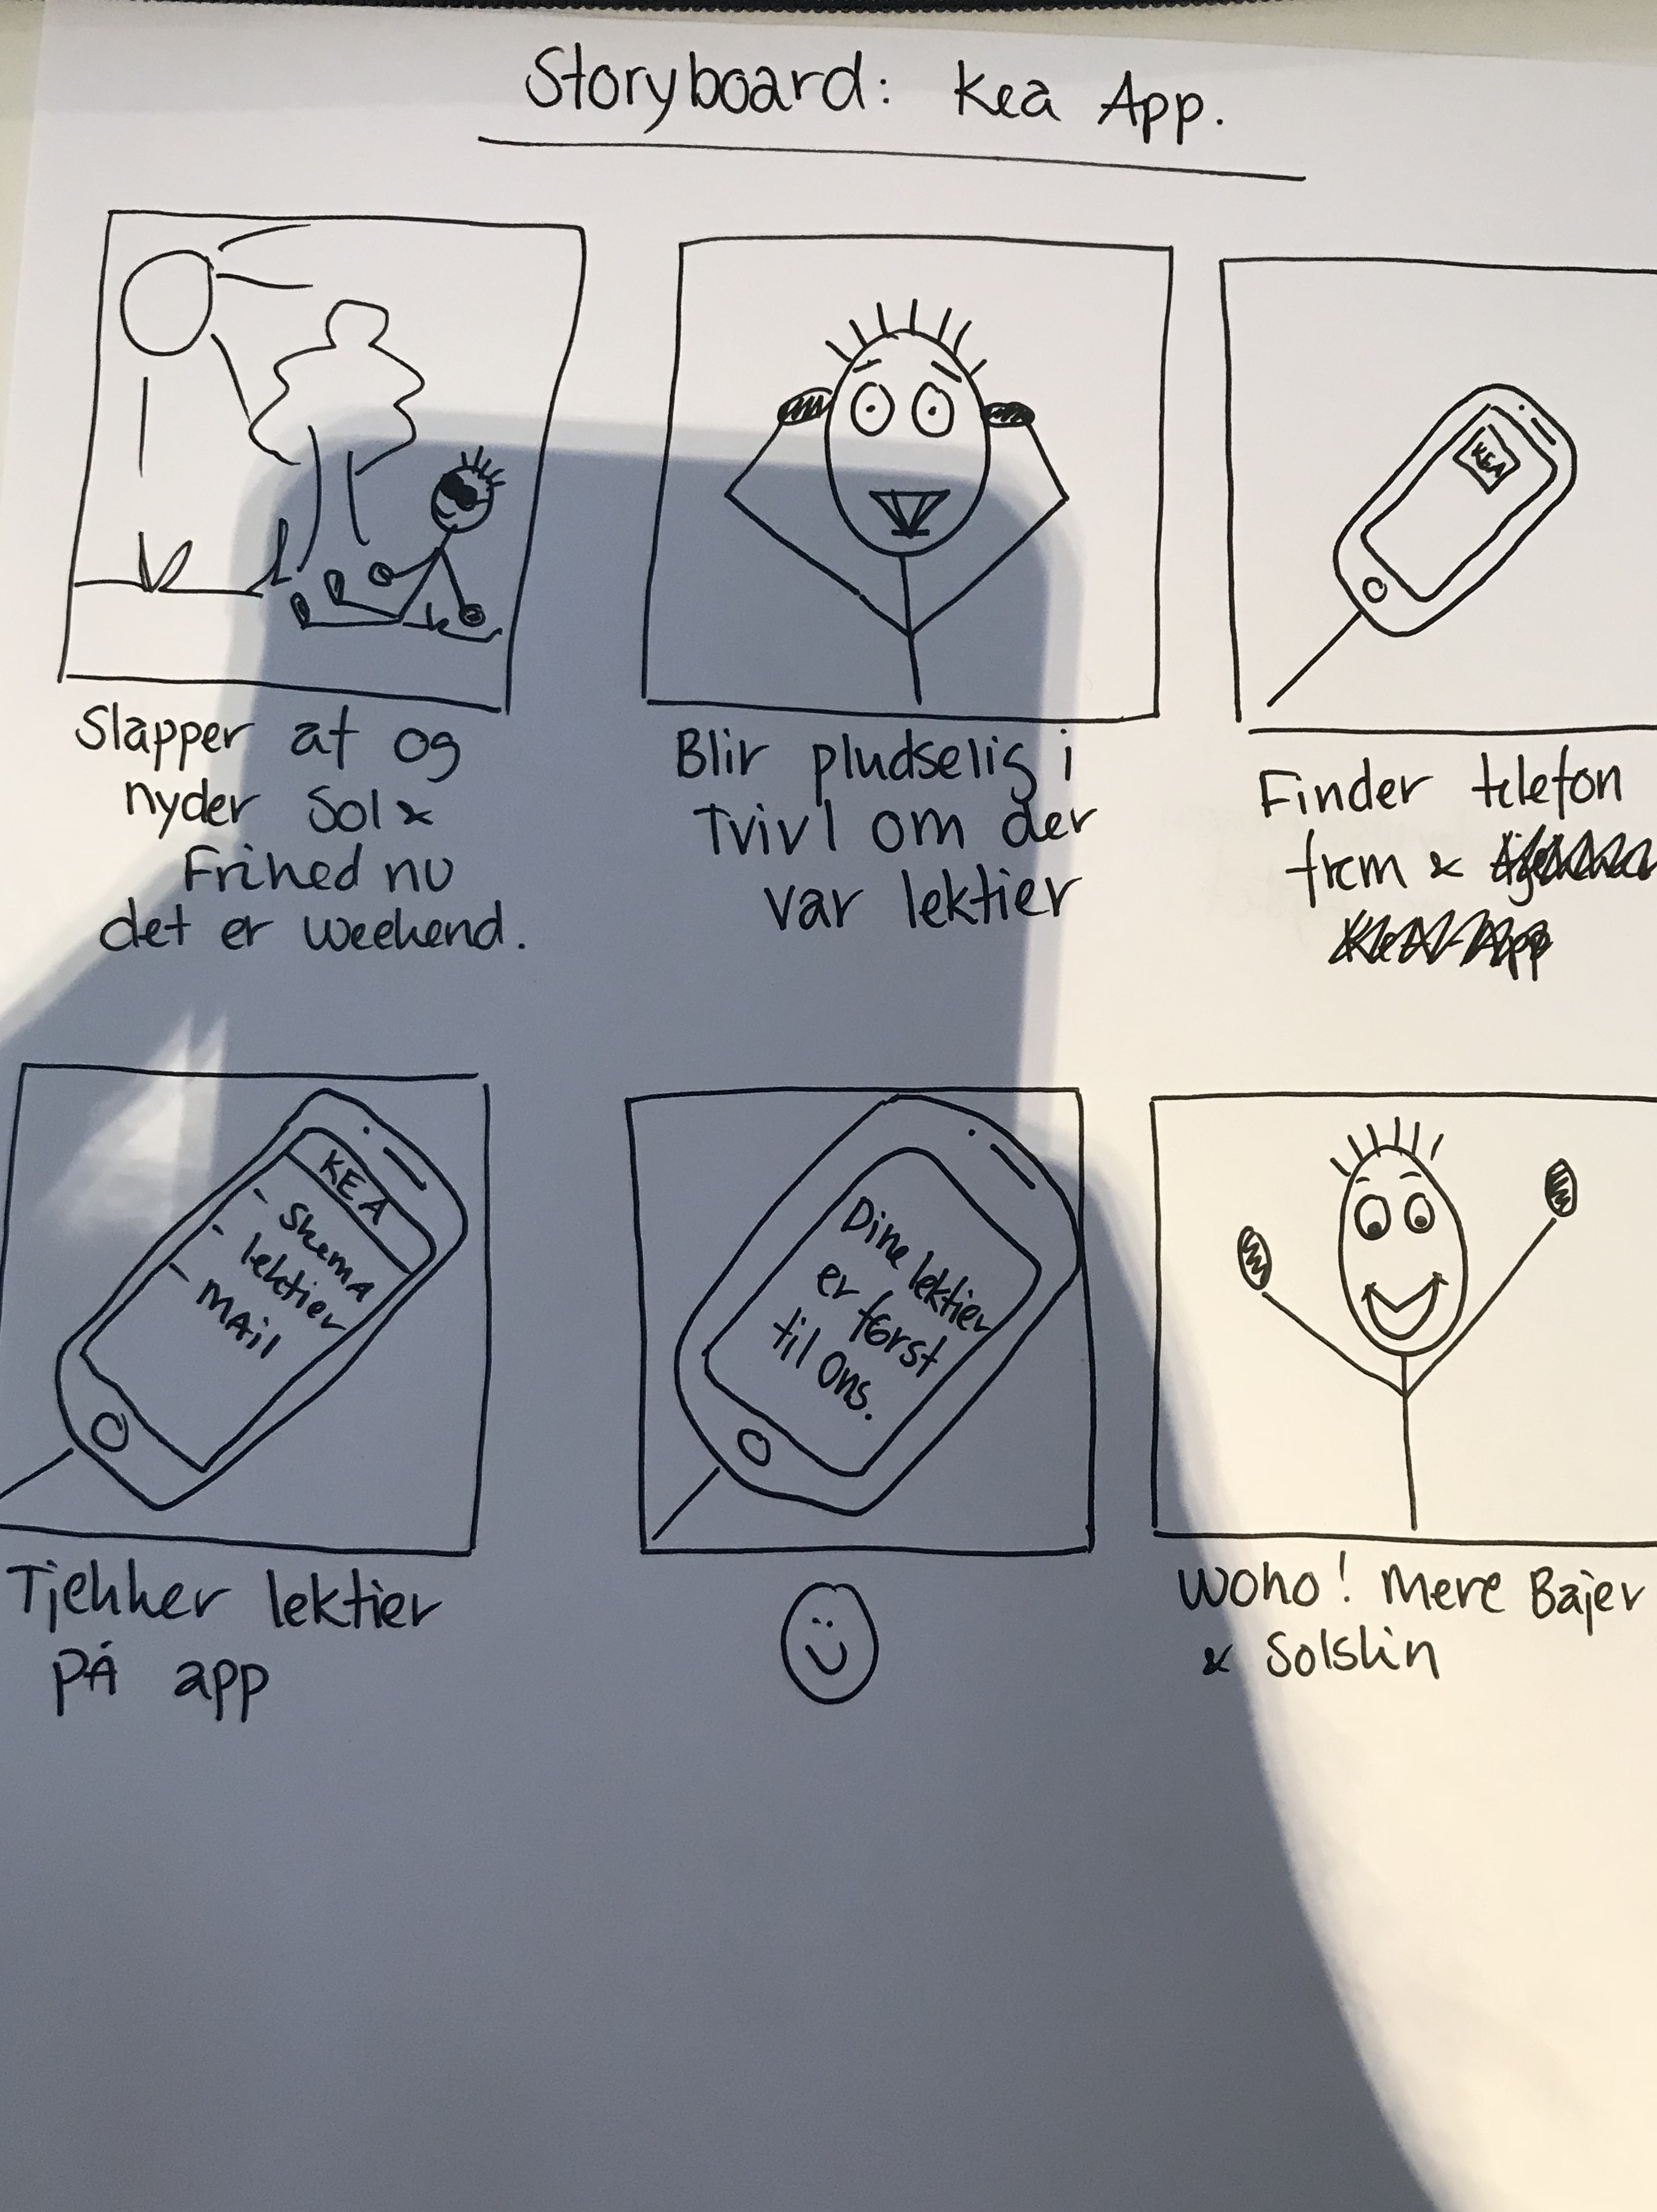 Storyboard: Kea App.
Slapper af og
nyder Sol &
Frihed nu
det er weekend.
Blir pludselig i
Tvivl om der
var lektier
KEA
Finder telefon
frem &
KEA App
KEA
- Skema
- lektier
- MAil
Tjekker lektier
PÅ app
Dine lektier
er først
til Ons.
Woho! Mere Bajer
& Solskin